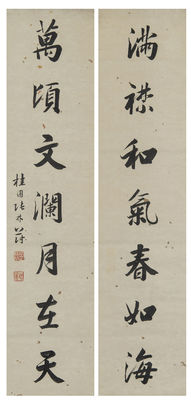 滿襟和氣春如海
萬頃文瀾月在天
桂圃